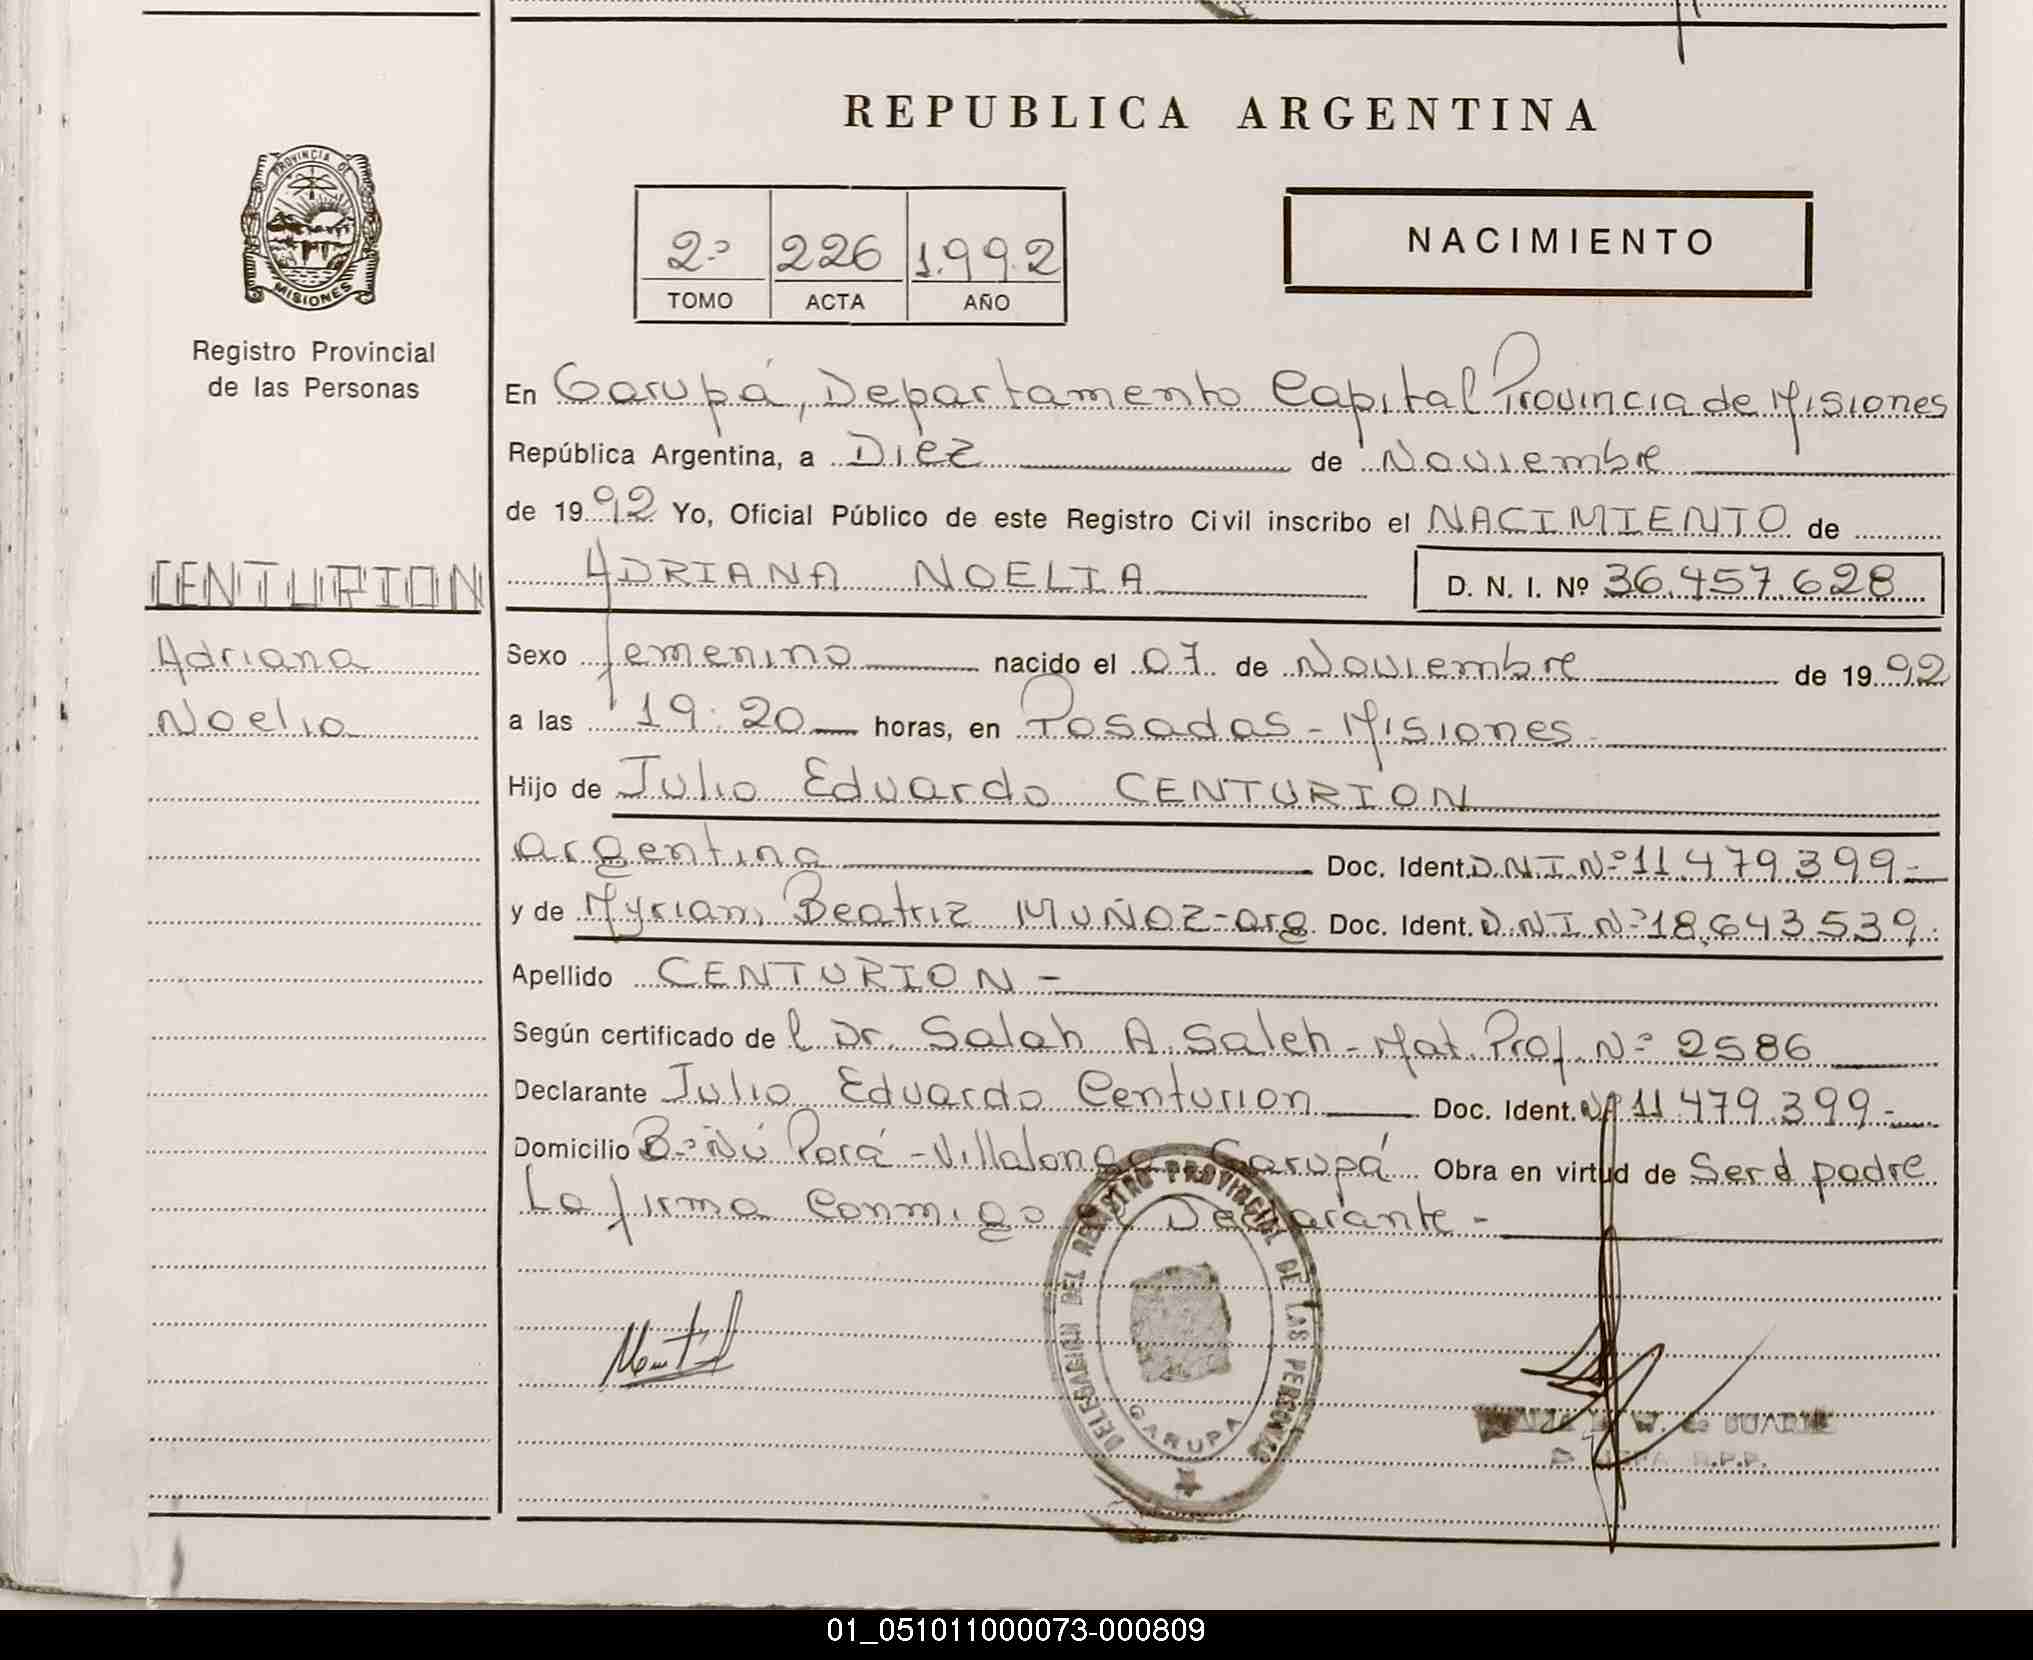 REPUBLICA ARGENTINA
PROVINCIA DE
MISIONES
Registro Provincial
de las Personas
2º 226 1.992
TOMO ACTA AÑO
NACIMIENTO
CENTURION
Adriana
Noelia
En Garupá, Departamento Capital Provincia de Misiones
República Argentina, a Diez de Noviembre
de 1992 Yo, Oficial Público de este Registro Civil inscribo el NACIMIENTO de
ADRIANA NOELIA D. N. I. Nº 36.457.628
Sexo femenino nacido el 07 de Noviembre de 1992
a las 19:20 horas, en Posadas - Misiones
Hijo de Julio Eduardo CENTURION
argentino Doc. Ident. D.N.I.Nº 11.479.399.-
y de Myriam Beatriz MUÑOZ-arg. Doc. Ident. D.N.I Nº 18.643.539.
Apellido CENTURION -
Según certificado de l Dr. Salah A. Saleh - Mat. Prof. Nº 2586
Declarante Julio Eduardo Centurion Doc. Ident. Nº 11.479.399.-
Domicilio Bº Ñú Porá - Villalonga Garupá Obra en virtud de Ser el padre
La firma conmigo el Declarante -
DELEGACION DEL REGISTRO PROVINCIAL DE LAS PERSONAS
GARUPA
W. de DUARTE
R.P.P.
01_051011000073-000809